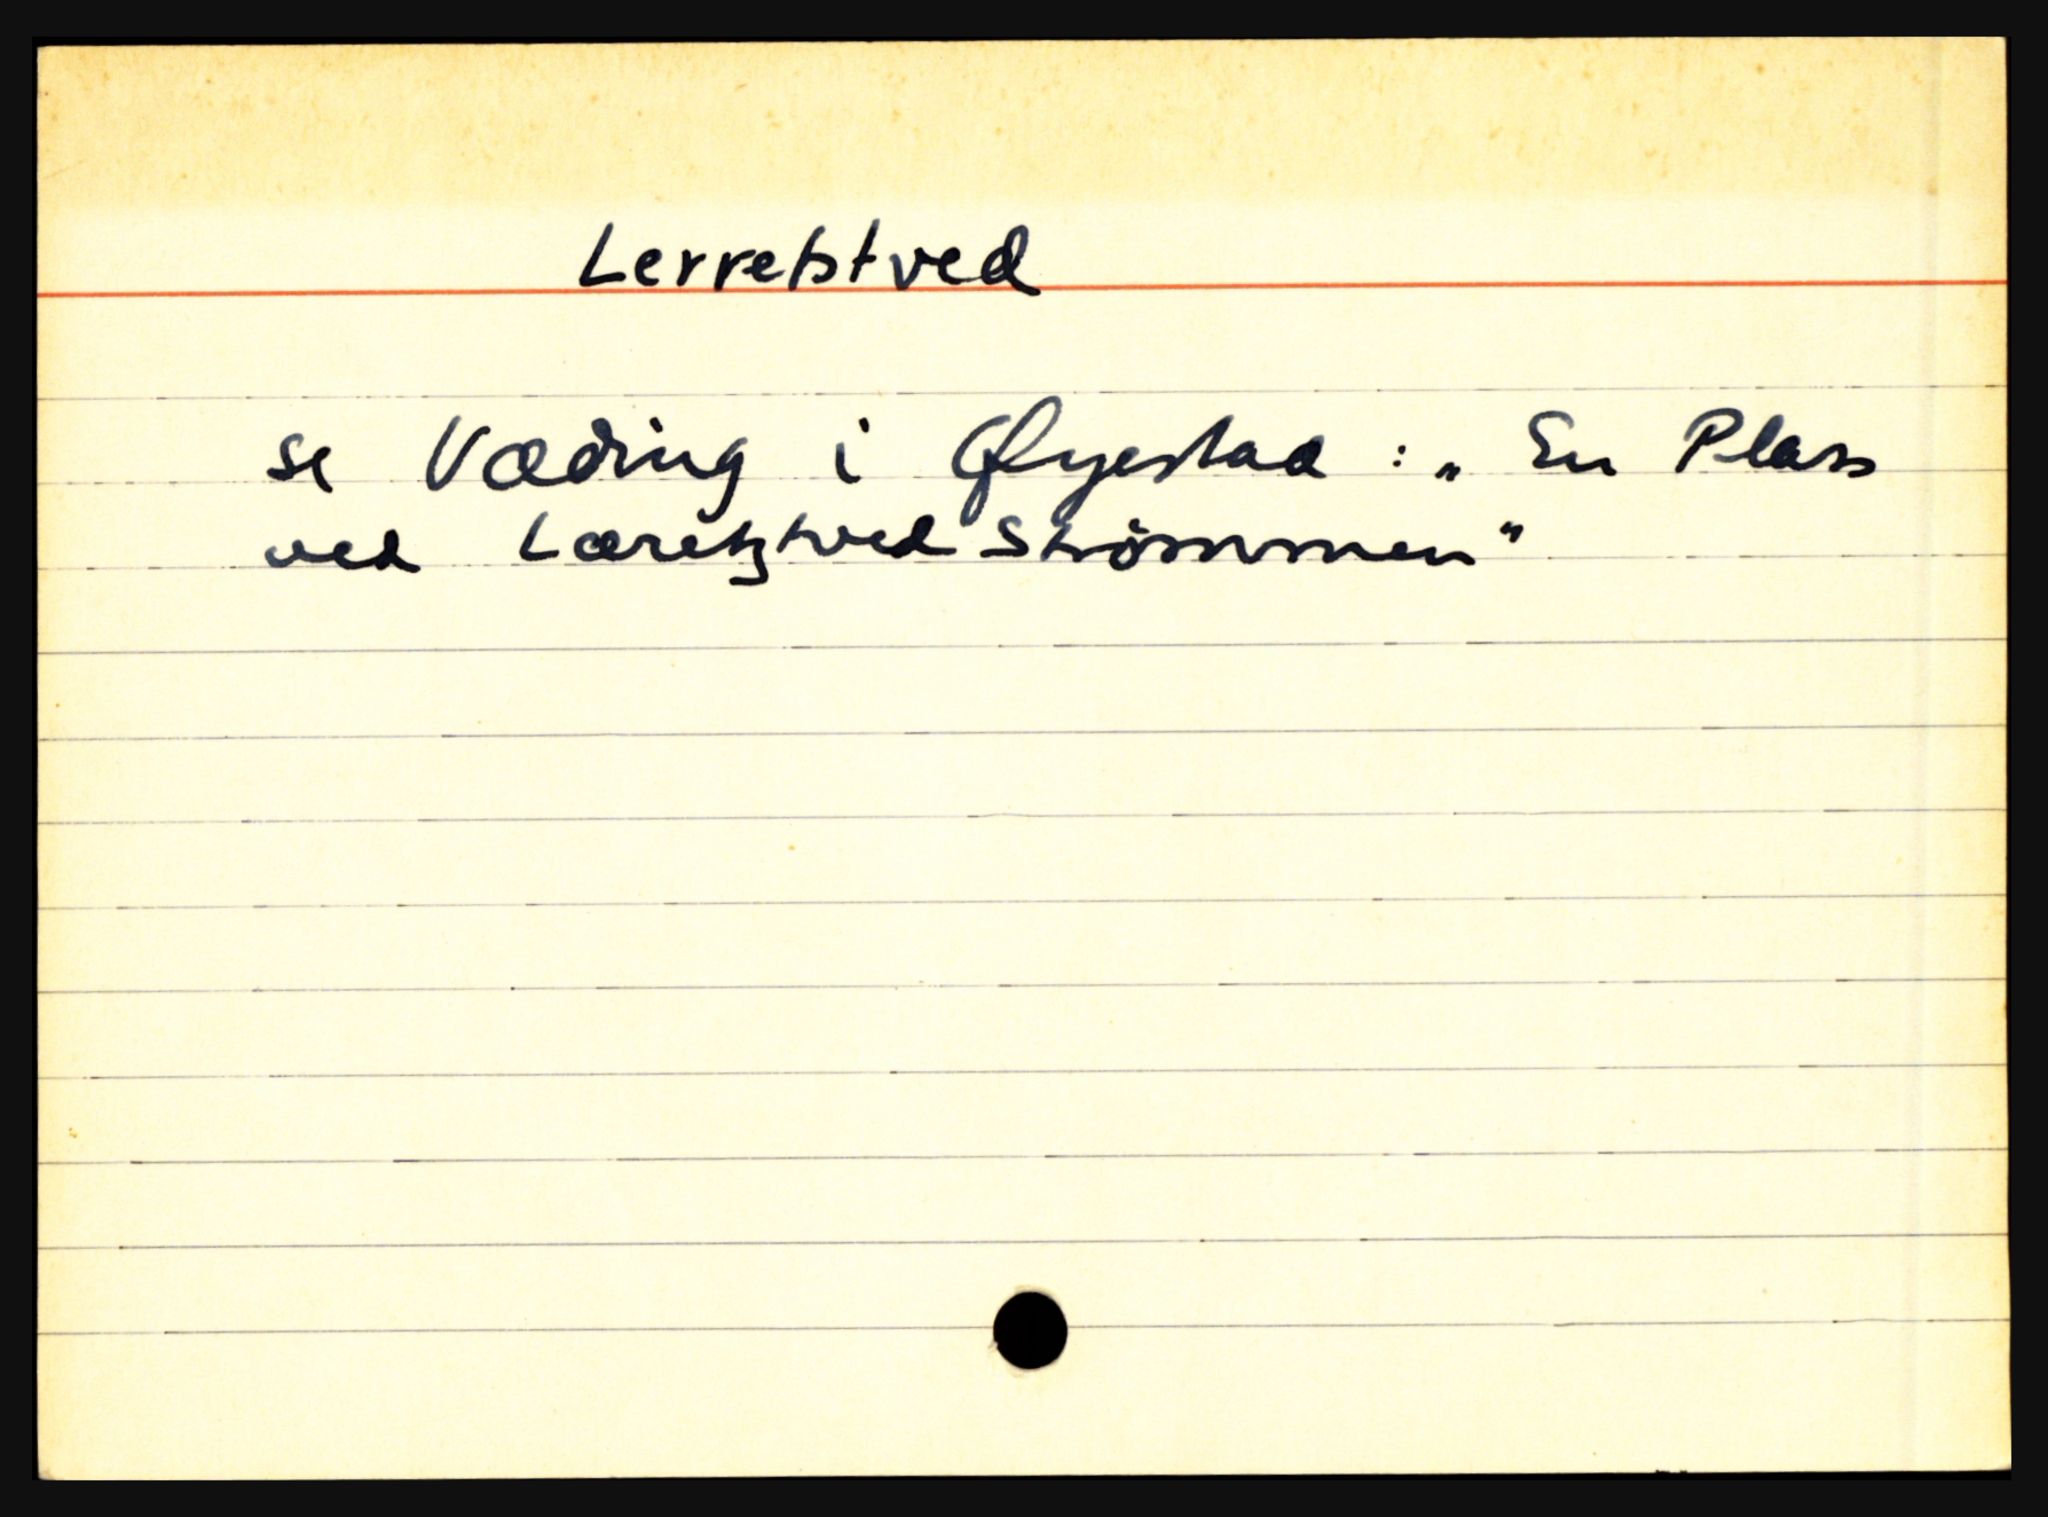 Lerretstved
se Væding i Øyestad : „ En Plass
ved Læretztved Strömmen"